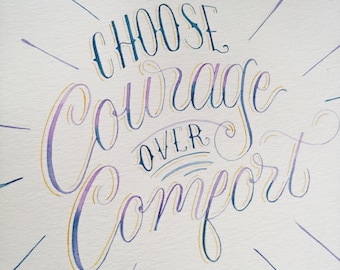 CHOOSE
Courage
OVER
Comfort